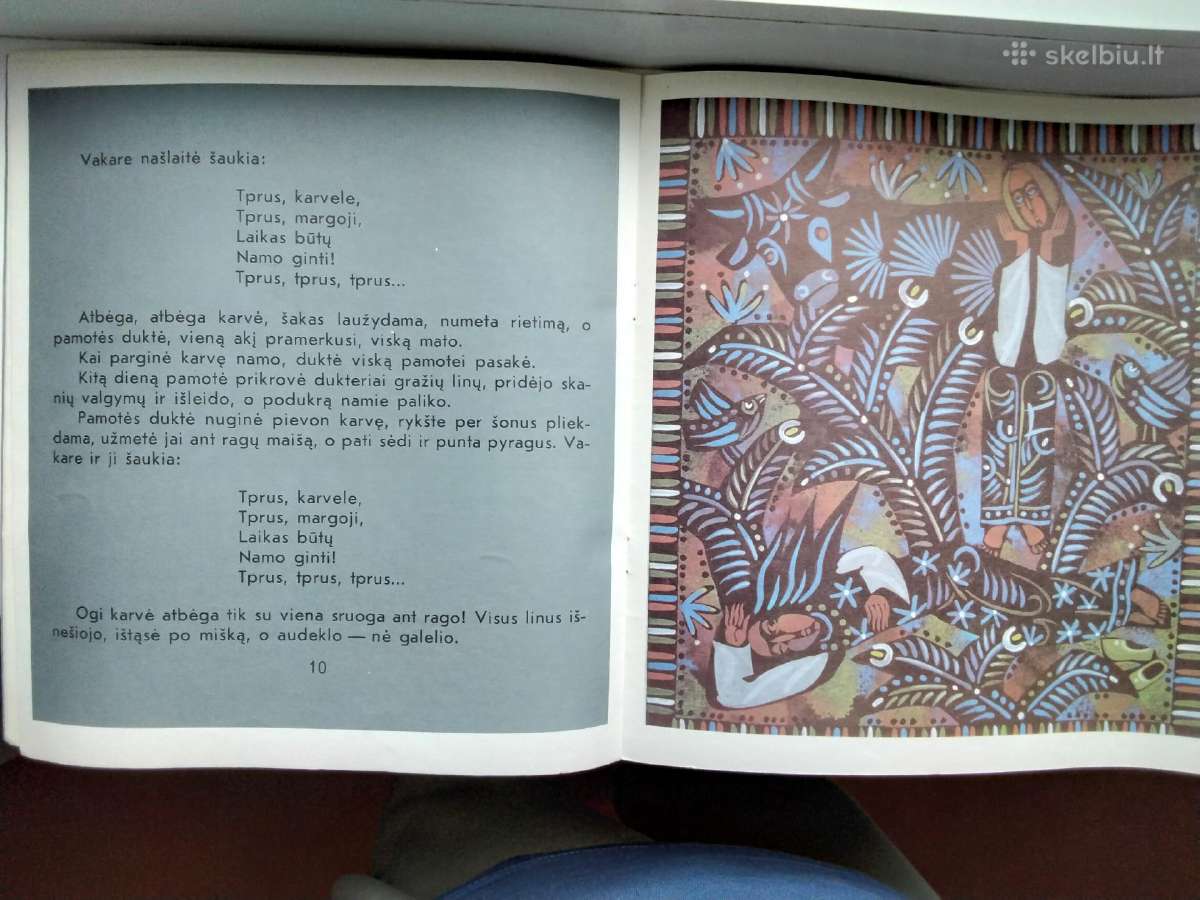 skelbiu.lt
Vakare našlaitė šaukia:
Tprus, karvele,
Tprus, margoji,
Laikas būtų
Namo ginti!
Tprus, tprus, tprus...
Atbėga, atbėga karvė, šakas laužydama, numeta rietimą, o
pamotės duktė, vieną akį pramerkusi, viską mato.
Kai parginė karvę namo, duktė viską pamotei pasakė.
Kitą dieną pamotė prikrovė dukteriai gražių linų, pridėjo ska-
nių valgymų ir išleido, o podukrą namie paliko.
Pamotės duktė nuginė pievon karvę, rykšte per šonus pliek-
dama, užmetė jai ant ragų maišą, o pati sėdi ir punta pyragus. Va-
kare ir ji šaukia:
Tprus, karvele,
Tprus, margoji,
Laikas būtų
Namo ginti!
Tprus, tprus, tprus...
Ogi karvė atbėga tik su viena sruoga ant rago! Visus linus iš-
nešiojo, ištąsė po mišką, o audeklo — nė galelio.
10